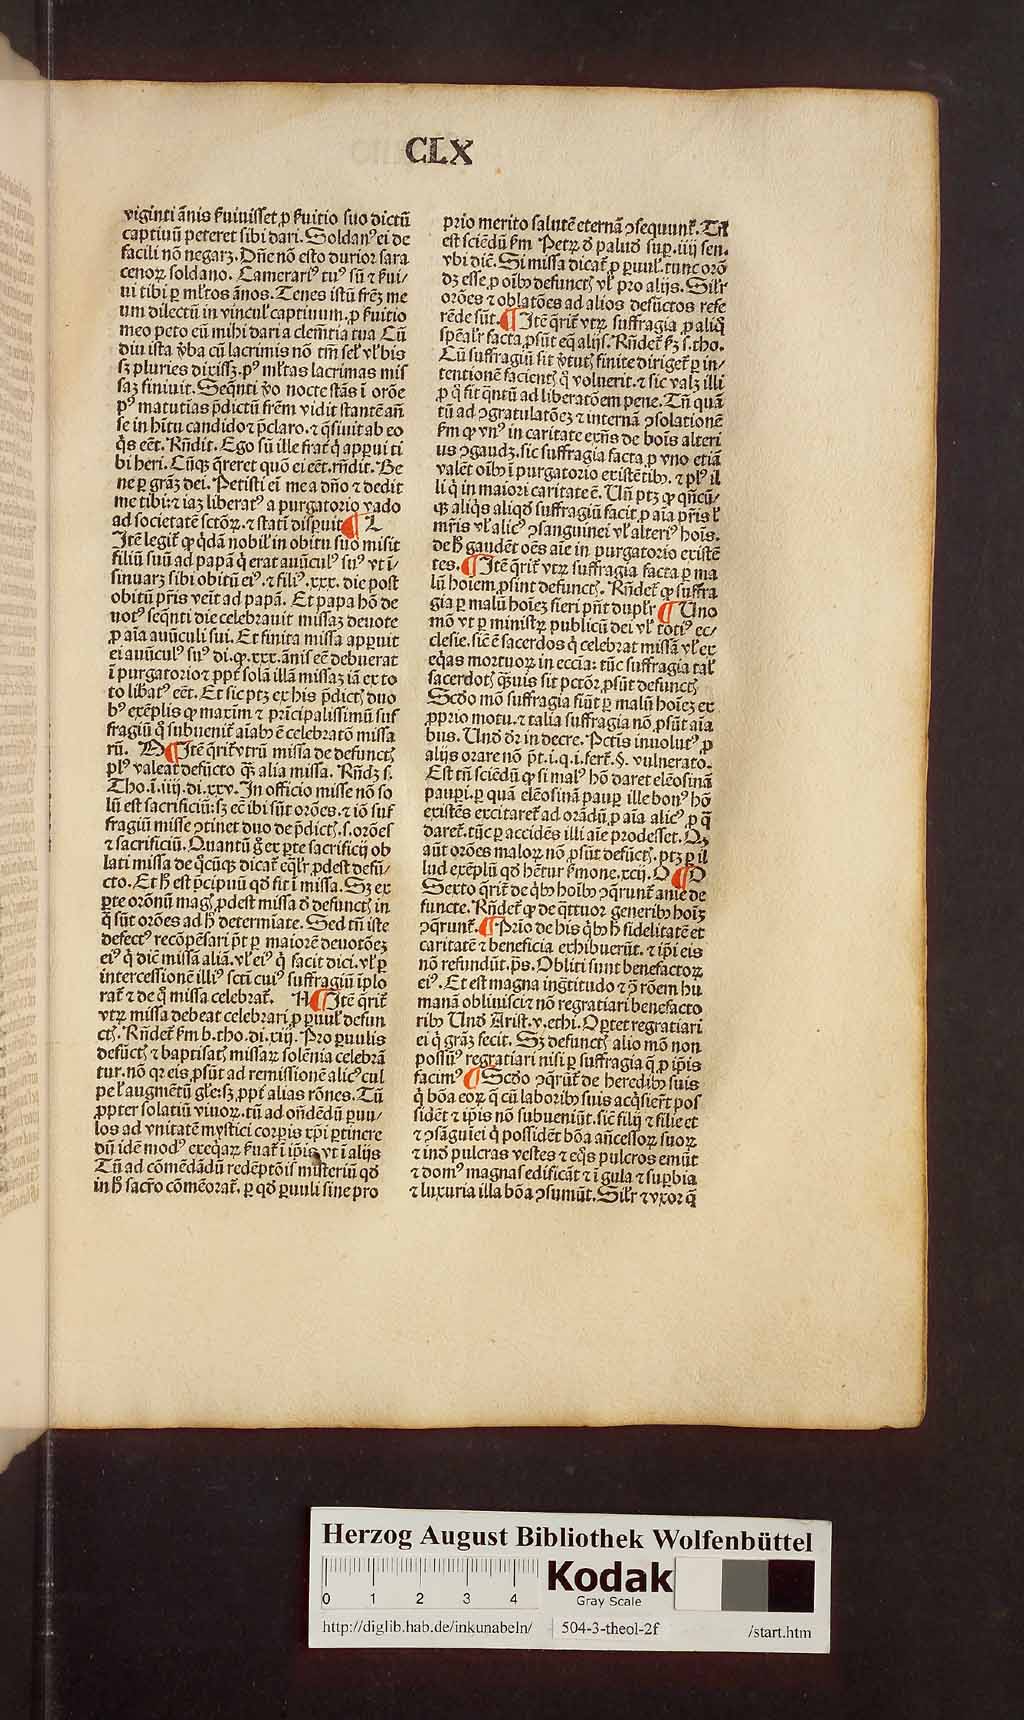 CLX
viginti ānis ẜuiuisset ꝓ ẜuitio suo dictū
captiuū peteret sibi dari. Soldanꝰ ei de
facili nō negarꝫ. Dn̄e nō esto durior sara
cenoꝝ soldano. Camerariꝰ tuꝰ sū ⁊ ẜui/
ui tibi ꝑ ml̓tos ānos. Tenes istū fr̄eꝫ me
um dilectū in vincul̓ captiuum. ꝓ ẜuitio
meo peto eū mihi dari a clem̄tia tua Cū
diu ista v̓ba cū lacrimis nō tm̄ sel̓ vl̓ bis
sꝫ pluries dixissꝫ. pꝰ ml̓tas lacrimas mis
saꝫ finiuit. Seq̄nti v̓o nocte stās ī orōe
pꝰ matutias p̄dictū fr̄em vidit stantē añ
se in hītu candido ⁊ p̄claro. ⁊ q̄siuit ab eo
q̇s eēt. Rn̄dit. Ego sū ille frat̓ q̇ apꝑui ti
bi heri. Cūqꝫ q̄reret quō ei eēt. rn̄dit. Be
ne ꝑ grāꝫ dei. Petisti ei me a dn̄o ⁊ dedit
me tibi: ⁊ iaꝫ liberatꝰ a purgatorio vado
ad societatē sctōꝝ. ⁊ statī disꝑuit ¶ L
Itē legit̓ ꝙ q̇dā nobil̓ in obitu suo misit
filiū suū ad papā q̇ erat auūculꝰ suꝰ vt ī/
sinuarꝫ sibi obitū eiꝰ. ⁊ filiꝰ .xxx. die post
obitū pr̄is veīt ad papā. Et papa hō de
uotꝰ seq̄nti die celebrauit missaꝫ deuote
ꝓ aīa auūculi sui. Et finita missa apꝑuit
ei auūculꝰ suꝰ di. ꝙ .xxx. ānis eē debuerat
ī purgatorio ⁊ ꝓpt̓ solā illā missaꝫ iā ex to
to lib̓atꝰ eēt. Et sic ptꝫ ex his p̄dictꝭ duo
bꝰ exēplis ꝙ maxim̄ ⁊ prīcipalissimū suf
fragiū q̇ subuenit̓ aīabꝰ ē celebratō missa
rū. ¶ Itē q̄rit̓ vtrū missa de defunctꝭ
plꝰ valeat defūcto q̄ꝫ alia missa. Rn̄dꝫ s.
Tho. ī .iiij. di. xxv. In officio misse nō so
lū est sacrificiū: sꝫ eē ibi sūt orōes. ⁊ iō suf
fragiū misse ɔtinet duo de p̄dictꝭ. s. orōes
⁊ sacrificiū. Quantū g̓ ex ꝑte sacrificij ob
lati missa de q̇cūqꝫ dicat̓ eq̄lr̄ ꝓdest defū/
cto. Et h̄ est p̄cipuū qd̓ fit ī missa. Sꝫ ex
ꝑte orōnū magꝭ ꝓdest missa d̓ defunctꝭ in
q̄ sūt orōes ad h̄ determīate. Sed tn̄ iste
defectꝰ recōpēsari pōt ꝑ maiorē deuotōeꝫ
eiꝰ q̇ diē missā aliā. vl̓ eiꝰ q̇ facit dici. vl̓ ꝑ
intercessionē illiꝰ scti cuiꝰ suffragiū īplo
rat̓ ⁊ de q̇ missa celebrat̓. ¶ Itē q̄rit̓
vtꝝ missa debeat celebrari ꝓ ꝑuul̓ defun
ctꝭ. Rn̄det̓ ẜm b. tho. di. xiij. Pro ꝑuulis
defūctꝭ ⁊ baptisatꝭ missaꝝ solēnia celebrā
tur. nō qꝛ eis ꝓsūt ad remissionē alicꝰ cul
pe l̓ augmētū gl̄e: sꝫ ꝓpt̓ alias rōnes. Tū
ꝓpter solatiū viuoꝝ. tū ad on̄dēdū ꝑuu/
los ad vnitatē mystici corꝑis xp̄i ꝑtinere
dū idē modꝰ exeq̄aꝝ ẜuat̓ ī ip̄is vt ī alijs
Tū ad cōmēdādū redēptōis misteriū qd̓
in h̄ sacr̄o cōmēorat̓. ꝑ qd̓ ꝑuuli sine pro
prio merito salutē eternā ɔsequunt̓. Tn̄
est sciēdū ẜm Petꝝ d̓ palud̓ suꝑ .iiij sen.
vbi diē. Si missa dicat̓ ꝓ ꝑuul̓. tunc orō
dꝫ esse ꝓ oībꝰ defunctꝭ vl̓ pro alijs. Silr̄
orōes ⁊ oblatōes ad alios defūctos refe
rēde sūt. ¶ Itē q̄rit̓ vtꝝ suffragia ꝓ aliq̇
spēalr̄ facta ꝓsūt eq̄ alijs. Rn̄det̓ ẜꝫ s. tho.
Cū suffragiū sit v̓tutꝭ finite diriget̓ ꝑ in/
tentionē facientꝭ q̇ voluerit. ⁊ sic valꝫ illi
ꝓ q̇ fit q̄ntū ad liberatōem pene. Tn̄ quā
tū ad ɔgratulatōeꝫ ⁊ internā ɔsolationē
ẜm ꝙ vnꝰ in caritate exn̄s de boīs alteri
us ɔgaudꝫ. sic suffragia facta ꝓ vno etiā
valēt oībꝰ ī purgatorio existētibꝰ. ⁊ plꝰ il
li q̇ in maiori caritate ē. Vn̄ ptꝫ ꝙ qn̄cū/
qꝫ aliq̇s aliqd̓ suffragiū facit ꝓ aīa pr̄is l̓
mr̄is vl̓ alicꝰ ɔsanguinei vl̓ alteriꝰ hoīs.
de h̄ gaudēt oēs aīe in purgatorio existē
tes. ¶ Itē q̄rit̓ vtꝝ suffragia facta ꝑ ma
lū hoiem ꝓsint defunctꝭ. Rn̄det̓ ꝙ suffra
gia ꝑ malū hoieꝫ fieri pn̄t duplr̄ ¶ Uno
mō vt ꝑ ministꝝ publicū dei vl̓ totiꝰ ec/
clesie. sicē ē sacerdos q̇ celebrat missā vl̓ ex
eq̄as mortuoꝝ in eccīa: tūc suffragia tal̓
sacerdotꝭ q̄ꝫuis sit pctōr̄ ꝓsūt defunctꝭ
Scd̓o mō suffragia fiūt ꝑ malū hoīeꝫ ex
ꝓprio motu. ⁊ talia suffragia nō ꝓsūt aīa
bus. Un̄ d̓r in decre. Pctīs inuolutꝰ ꝓ
alijs orare nō pōt. i. q. i. fert̓. §. vulnerato.
Est tn̄ sciēdū ꝙ si malꝰ hō daret elēosinā
pauꝑi. ꝑ quā elēosinā pauꝑ ille bonꝰ hō
existēs excitaret̓ ad orādū ꝓ aīa alicꝰ ꝓ q̄
daret̓. tūc ꝑ accidēs illi aīe prodesset. Qꝫ
aūt orōes maloꝝ nō ꝓsūt defūctꝭ. ptꝫ ꝑ il
lud exēplū qd̓ hētur ẜmone. xcij. O ¶ O
Sexto q̄rit̓ de q̇bꝰ hoībꝰ ɔq̄runt̓ anīe de
functe. Rn̄det̓ ꝙ de q̄ttuor generibꝰ hoīꝫ
ɔq̄runt̓. ¶ Prīo de his q̇bꝰ h̄ fidelitatē et
caritatē ⁊ beneficia exhibuerūt. ⁊ ip̄i eis
nō refundūt. ps. Obliti sunt benefactoꝝ
eiꝰ. Et est magna ingtitudo ⁊ ɔ̄ rōem hu
manā obliuisci ⁊ nō regratiari benefacto
ribꝰ Und̓ Arist. v. ethi. Oportet regratiari
ei q̇ grāꝫ fecit. Sꝫ defunctꝭ alio mō non
possūꝰ regratiari nisi ꝑ suffragia q̄ ꝓ ip̄is
facimꝰ ¶ Scd̓o ɔq̄rūt̓ de heredibꝰ suis
q̇ bōa eoꝝ q̄ cū laboribꝰ suis acq̇sierūt pos
sidēt ⁊ ip̄is nō subueniūt. sicē filij ⁊ filie et
⁊ ɔsāguīei q̇ possidēt bōa an̄cessoꝝ suoꝝ
⁊ ind̓ pulcras vestes ⁊ eq̄s pulcros emūt
⁊ domꝰ magnas edificāt ⁊ ī gula ⁊ suꝑbia
⁊ luxuria illa bōa ɔsumūt. Silr̄ ⁊ vxor q̄
Herzog August Bibliothek Wolfenbüttel
0 1 2 3 4
Kodak
Gray Scale
http://diglib.hab.de/inkunabeln/ 504-3-theol-2f /start.htm